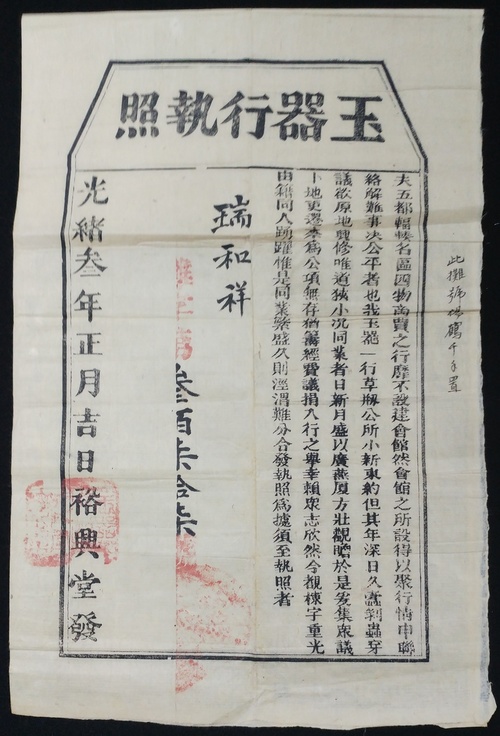 玉器行執照
此攤號
夫五都輻輳名區四物商賈之行靡不設建會館然會館之所設得以聚行情申聯
絡解難事决公平者也我玉器一行草搬公所小新東約但其年深日久蠹剝蟲穿
議欲原地興修唯道狹小况同業者日新月盛以廣燕厦方壯觀瞻於是爰集衆議
卜地更遷奈為公項無存猶籌經費議捐入行之舉幸賴衆志欣然今覩棟宇重光
由籍同人踴躍惟是同業繁盛久則涇渭難分合發執照為據須至執照者
瑞和祥
字第叁佰柒拾柒
光緒叁年正月吉日裕興堂發